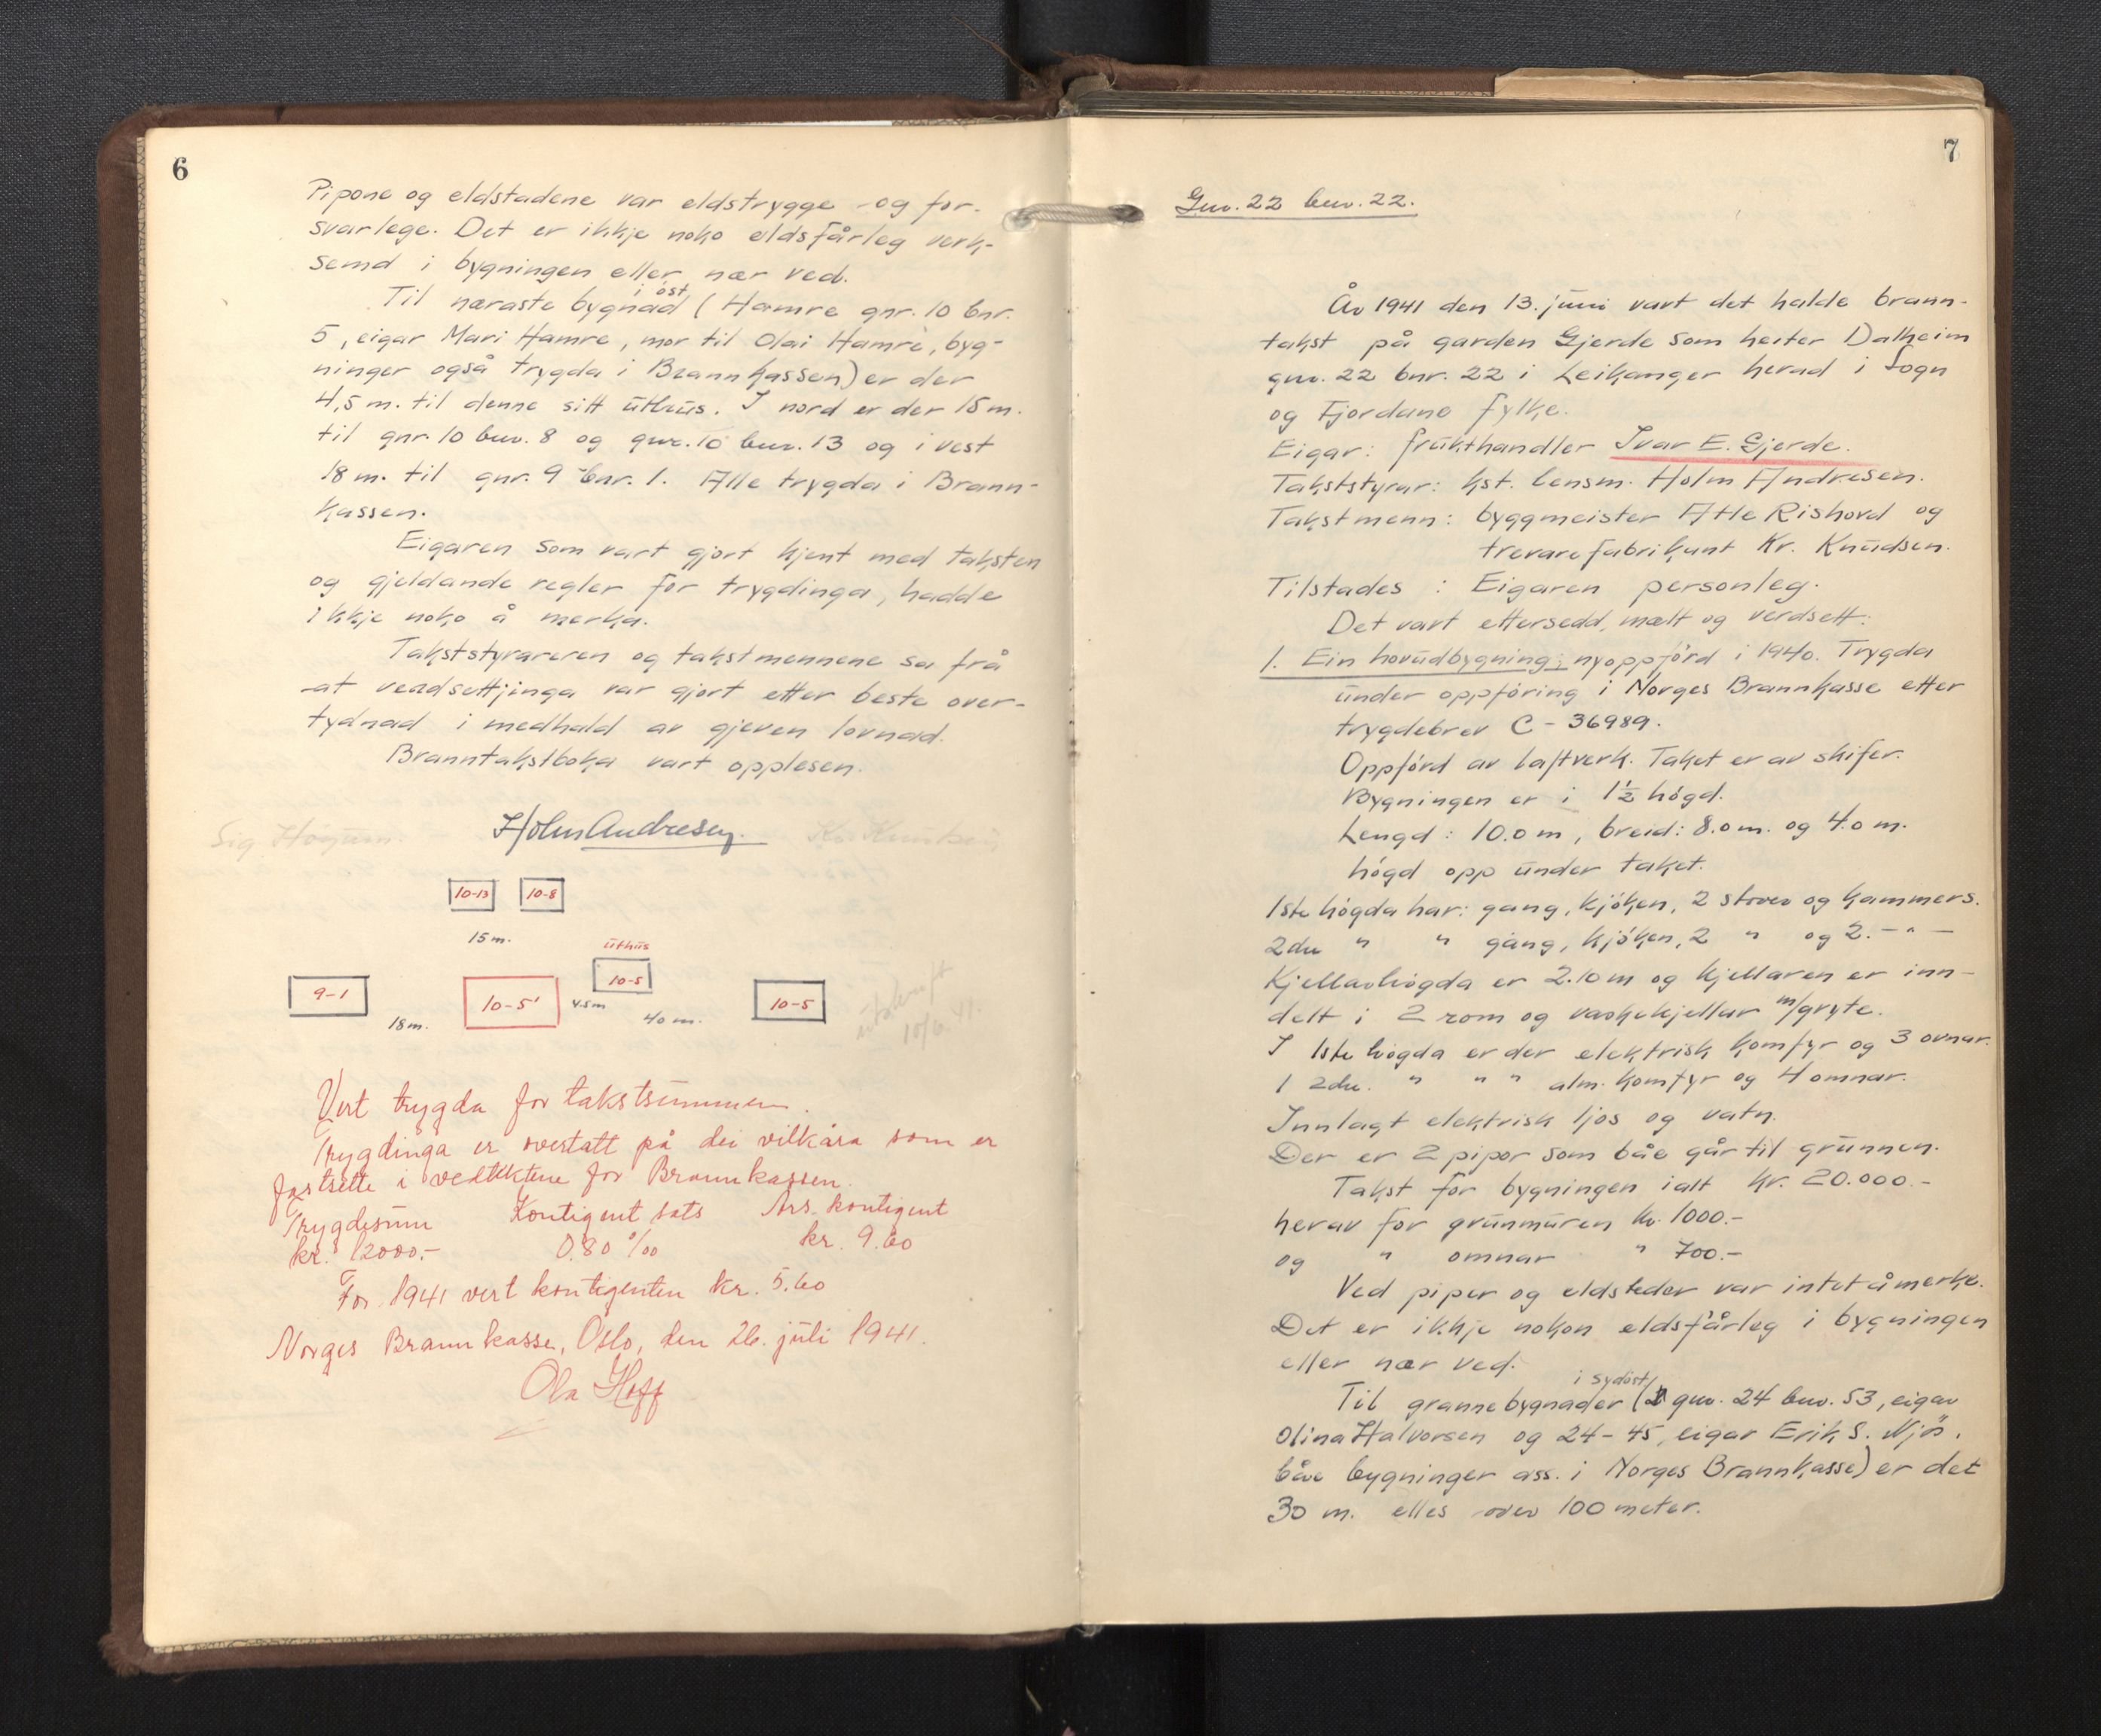 6
Pipone og eldstadene var eldstrygge og for-
svarlege. Det er ikkje noko eldsfårleg verk-
semd i bygningen eller nær ved.
i öst
Til næraste bygnad (Hamre gnr. 10 bnr.
5, eigar Mari Hamre, mor til Olai Hamre, byg-
ninger også trygda i Brannkassen) er der
4,5 m. til denne sitt uthus. I nord er der 15 m.
til gnr. 10 bnr. 8 og gnr. 10 bnr. 13 og i vest
18 m. til gnr. 9 bnr. 1. Alle trygda i Brann-
kassen.
Eigaren som vart gjort kjent med taksten
og gjeldande regler for trygdinga, hadde
ikkje noko å merka.
Takststyrareren og takstmennene sa frå
at verdsettjinga var gjort etter beste over-
tydnad i medhald av gjeven lovnad.
Branntakstboka vart opplesen.
Sig. Høyum Holm Andresen. Kr. Knudsen
10-13 10-8
15 m.
uthus
9-1 18 m. 10-5' 4.5 m 10-5 40 m. 10-5
utskrift
10/6 41.
Vert trygda for takstsummen.
Trygdinga er overtatt på dei vilkåra som er
fastsette i vedtektene for Brannkassen.
Trygdesum Kontigent sats Års kontigent
kr. 12000.- 0.80 ‰ kr. 9.60
For 1941 vert kontigenten kr. 5.60
Norges Brannkasse, Oslo, den 26. juli 1941.
Ola Hoff
7
Gnr. 22 bnr. 22.
År 1941 den 13. juni vart det halde brann-
takst på garden Gjerde som heiter Dalheim
gnr. 22 bnr. 22 i Leikanger herad i Sogn
og Fjordane fylke.
Eigar: frukthandler Ivar E. Gjerde.
Takststyrar: kst. lensm. Holm Andresen.
Takstmenn: byggmeister Atle Rishovd og
trevarefabrikant Kr. Knudsen.
Tilstades : Eigaren personleg.
Det vart ettersedd, mælt og verdsett:
1. Ein hovudbygning; nyoppförd i 1940. Trygda
under oppföring i Norges Brannkasse etter
trygdebrev C - 36989.
Oppförd av laftverk. Taket er av skifer.
Bygningen er i 1½ högd.
Lengd: 10.0 m, breid: 8.0 m. og 4.0 m.
högd opp under taket.
1ste högda har: gang, kjöken, 2 stover og kammers.
2dre " " gang, kjöken, 2 " og 2. - " -
Kjellarhögda er 2.10 m og kjellaren er inn-
delt i 2 rom og vaskekjellar m/gryte.
I 1ste högda er der elektrisk komfyr og 3 ovnar.
I 2dre. " " " alm. komfyr og 4 omnar.
Innlagt elektrisk ljos og vatn.
Der er 2 pipor som båe går til grunnen.
Takst for bygningen ialt kr. 20.000.-
herav for grunmuren kr. 1000.-
og " omnar " 700.-
Ved piper og eldsteder var intet å merke.
Det er ikkje nokon eldsfårleg i bygningen
eller nær ved.
i sydöst
Til grannebygnader (gnr. 24 bnr. 53, eigar
Olina Halvorsen og 24-45, eigar Erik S. Njös,
båe bygninger ass. i Norges Brannkasse) er det
30 m. elles over 100 meter.